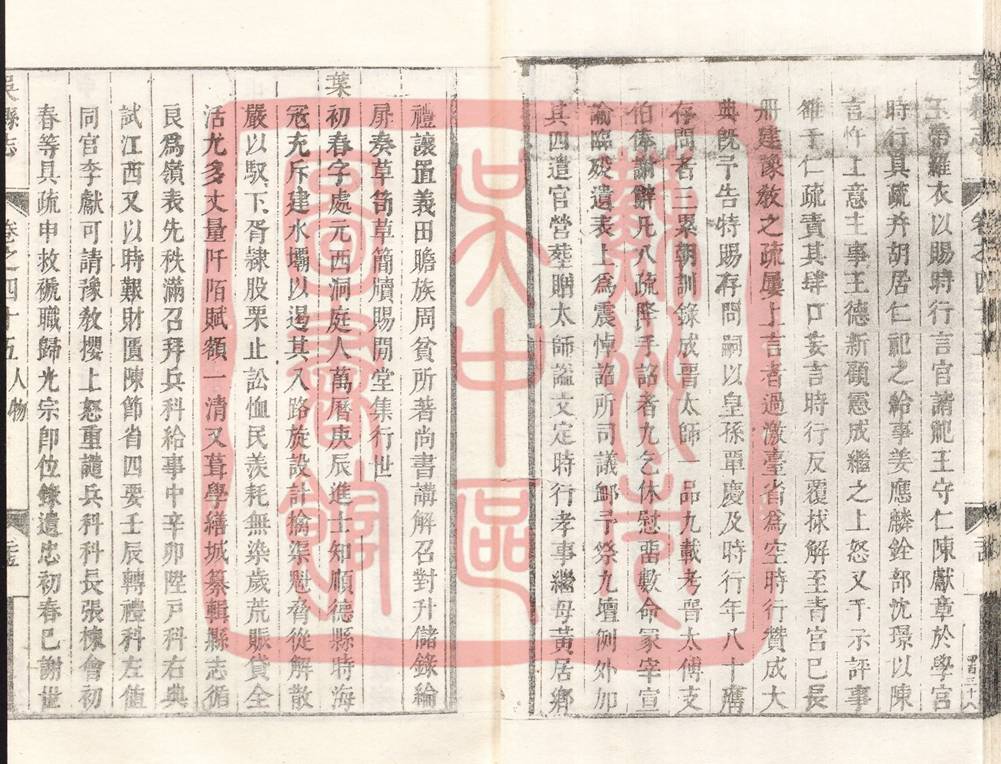 玉帶羅衣以賜時行言官請祀王守仁陳獻章於學宮
時行具疏并胡居仁祀之給事姜應麟銓部沈璟以陳
言忤上意主事王德新顧憲成繼之上怒又于示評事
雒于仁疏責其肆口妄言時行反覆捄解至青宮已長
冊建豫教之疏屢上言者過激臺省爲空時行贊成大
典旣予告特賜存問嗣以皇孫覃慶及時行年八十膺
存問者三累朝訓錄成晋太師一品九載考晋太傅支
伯俸謝辭凡八疏降手諭者九乞休慰留數命冢宰宣
諭臨歿遺表上爲震悼詔所司議卹予祭九壇側外加
其四遣官營塟贈太師謚文定時行孝事繼母黃居鄉
吳縣志 卷之四十五 人物
禮讓置義田贍族周貧所著尚書講解召對升儲錄綸
扉奏草笥草簡牘賜閒堂集行世
葉初春字處元西洞庭人萬曆庚辰進士知順德縣時海
冦充斥建水壩以遏其入路旋設計擒渠魁脅從解散
嚴以馭下胥隸股栗止訟恤民羨耗無染歲荒賑貸全
活尤多丈量阡陌賦額一清又葺學繕城纂輯縣志循
良爲嶺表先秩滿召拜兵科給事中辛卯陞戶科右典
試江西又以時艱財匱陳節省四要壬辰轉禮科左値
同官李獻可請豫教攖上怒重譴兵科科長張棟會初
春等具疏申救褫職歸光宗卽位錄遺忠初春已謝世
蘇州市吳中區圖書館